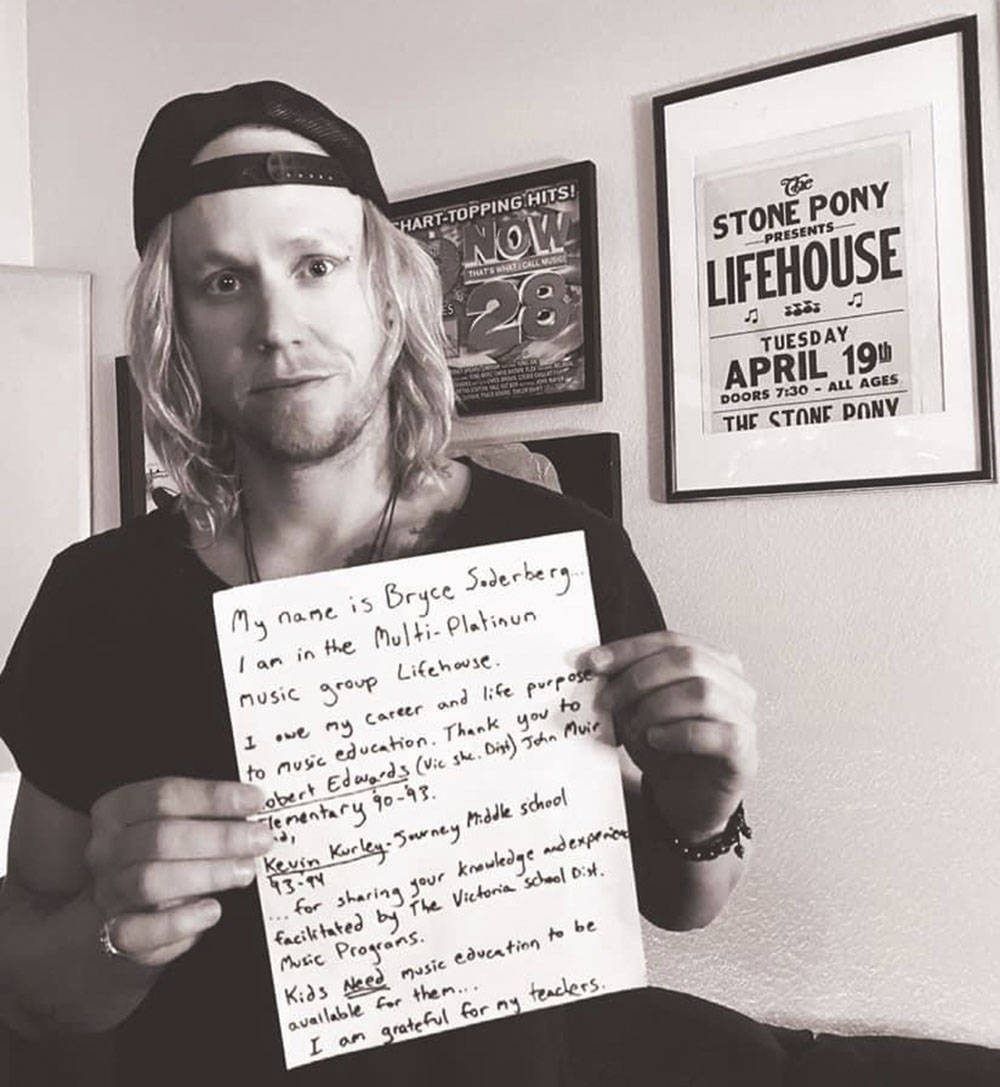 CHART-TOPPING HITS!
NOW
THAT'S WHAT I CALL MUSIC!
28
The
STONE PONY
PRESENTS
LIFEHOUSE
TUESDAY
APRIL 19th
DOORS 7:30 - ALL AGES
THE STONE PONY
My name is Bryce Soderberg...
I am in the Multi-Platinum
music group Lifehouse.
I owe my career and life purpose
to music education. Thank you to
obert Edwards (Vic shc. Dist) John Muir
lementary '90-'93.
Kevin Kurley-Journey Middle school
'93-94
...for sharing your knowledge and experience
facilitated by The Victoria School Dist.
Music Programs.
Kids Need music education to be
available for them...
I am grateful for my teachers.